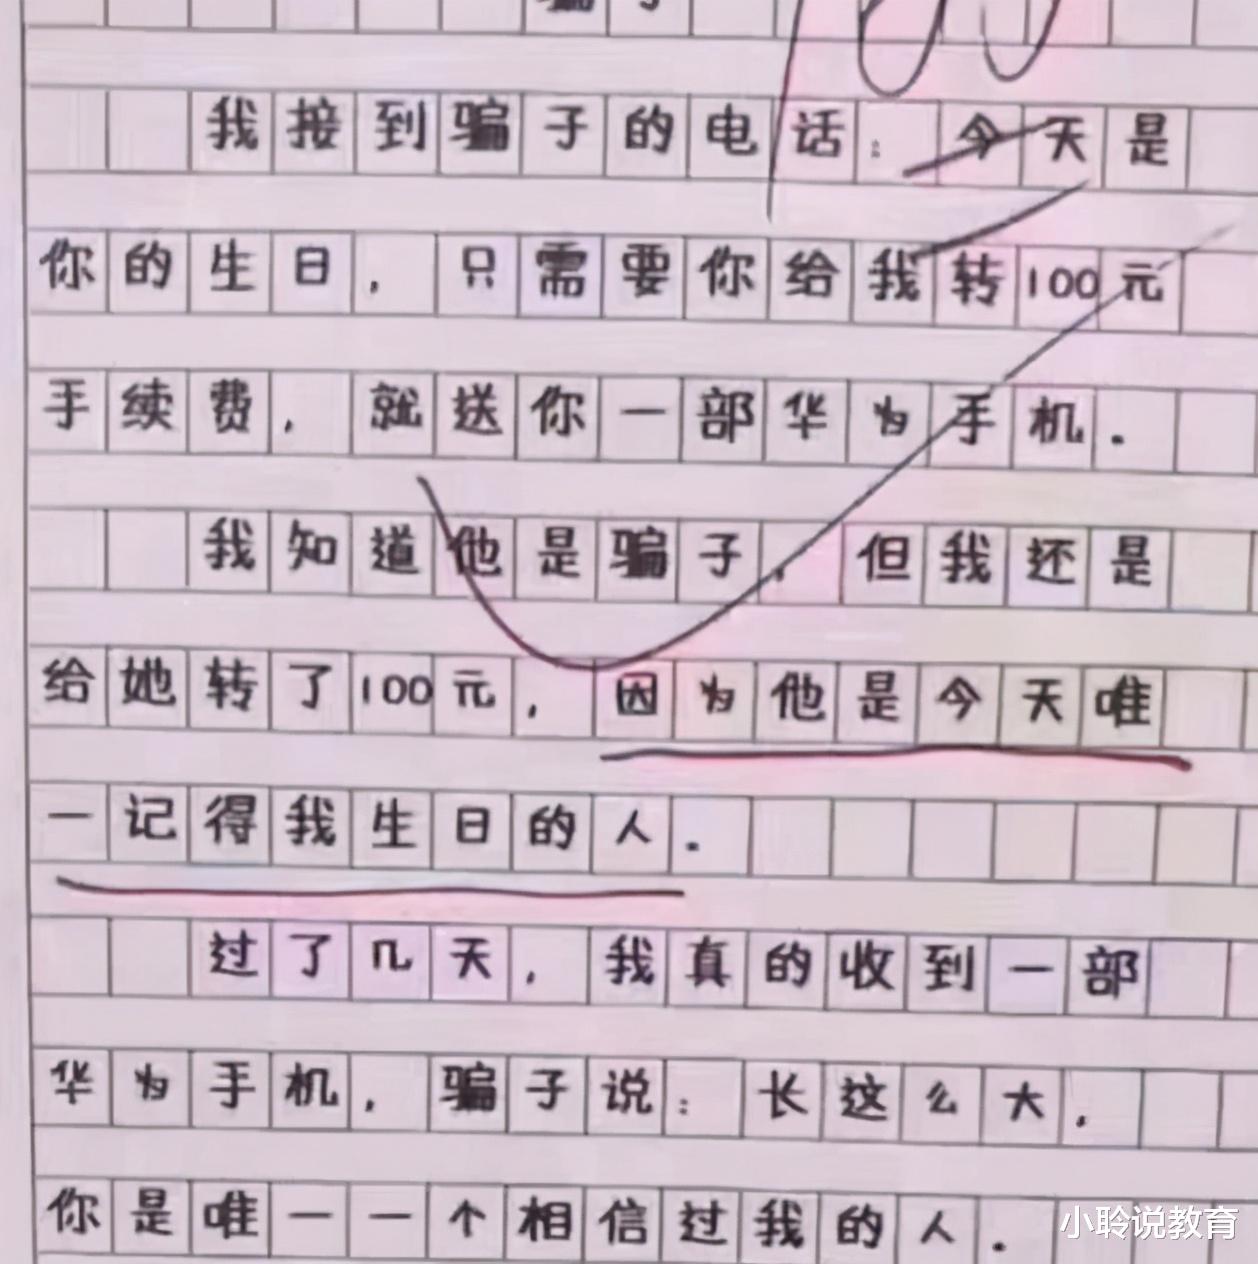 骗子
我接到骗子的电话：今天是
你的生日，只需要你给我转100元
手续费，就送你一部华为手机.
我知道他是骗子，但我还是
给她转了100元，因为他是今天唯
一记得我生日的人.
过了几天，我真的收到一部
华为手机，骗子说：长这么大，
你是唯一一个相信过我的人.
小聆说教育